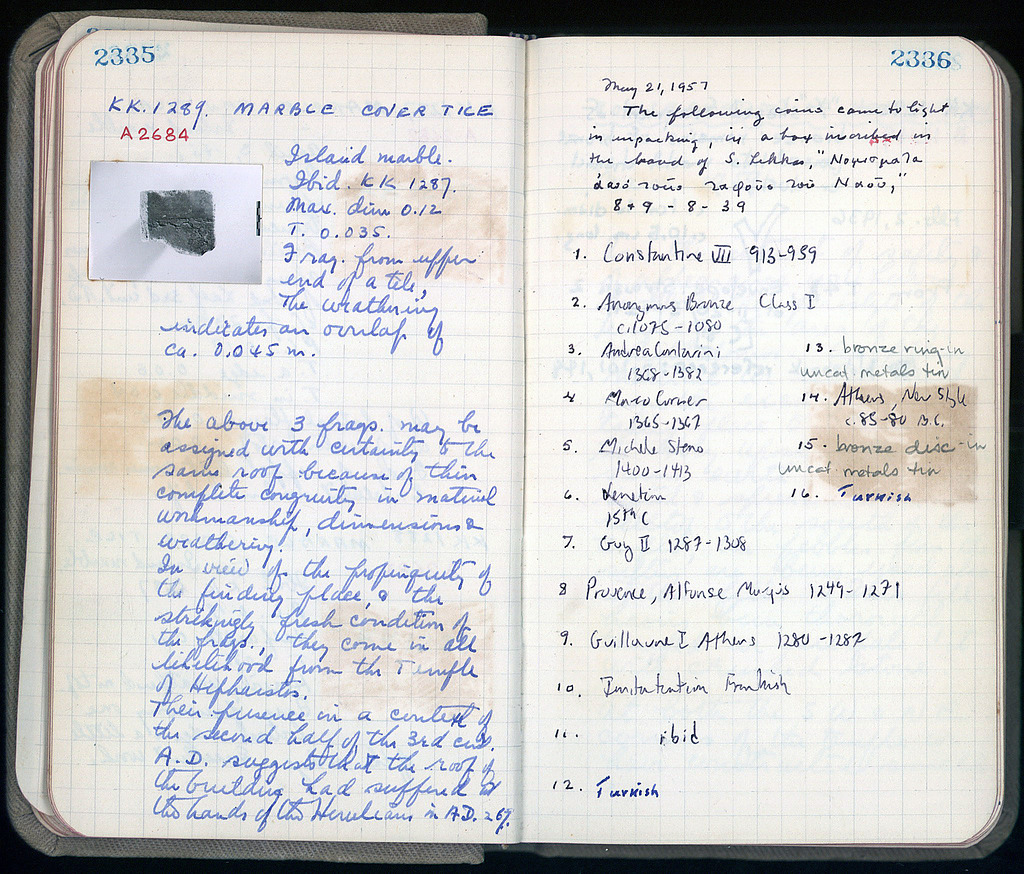 2335
KK.1289. MARBLE COVER TILE
A 2684
Island marble.
Ibid. KK 1287.
Max. dim 0.12
T. 0.035.
Frag. from upper
end of a tile,
The weathering
indicates an overlap of
ca. 0.045 m.
The above 3 frags. may be
assigned with certainty to the
same roof because of their
complete congruity in material
workmanship, dimensions &
weathering.
In view of the propinquity of
the finding place, & the
strikingly fresh condition of
the frags., they come in all
likelihood from the Temple
of Hephaistos.
Their presence in a context of
the second half of the 3rd cent.
A.D. suggests that the roof of
the building had suffered at
the hands of the Herulians in A.D. 267.
2336
May 21, 1957
The following coins came to light
in unpacking, in a box inscribed in
the hand of S. Lekkas, "Νομισματα
ἀπὸ τοὺς ταφοὺς τοῦ Ναοῦ,"
8+9-8-39
1. Constantine VII 913-959
2. Anonymous Bronze Class I
c.1075-1080
3. Andrea Contarini
1368-1382
4 Marco Corner
1365-1367
5. Michele Steno
1400-1413
6. Venetian
15th C
7. Guy II 1287-1308
8 Provence, Alfonse Marquis 1249-1271
9. Guillaume I Athens 1280-1287
10. Imitatation Frankish
11. ibid
12. Turkish
13. bronze ring-in
uncat. metals tin
14. Athens, New Style
c.85-80 B.C.
15. bronze disc-in
uncat. metals tin
16. Turkish